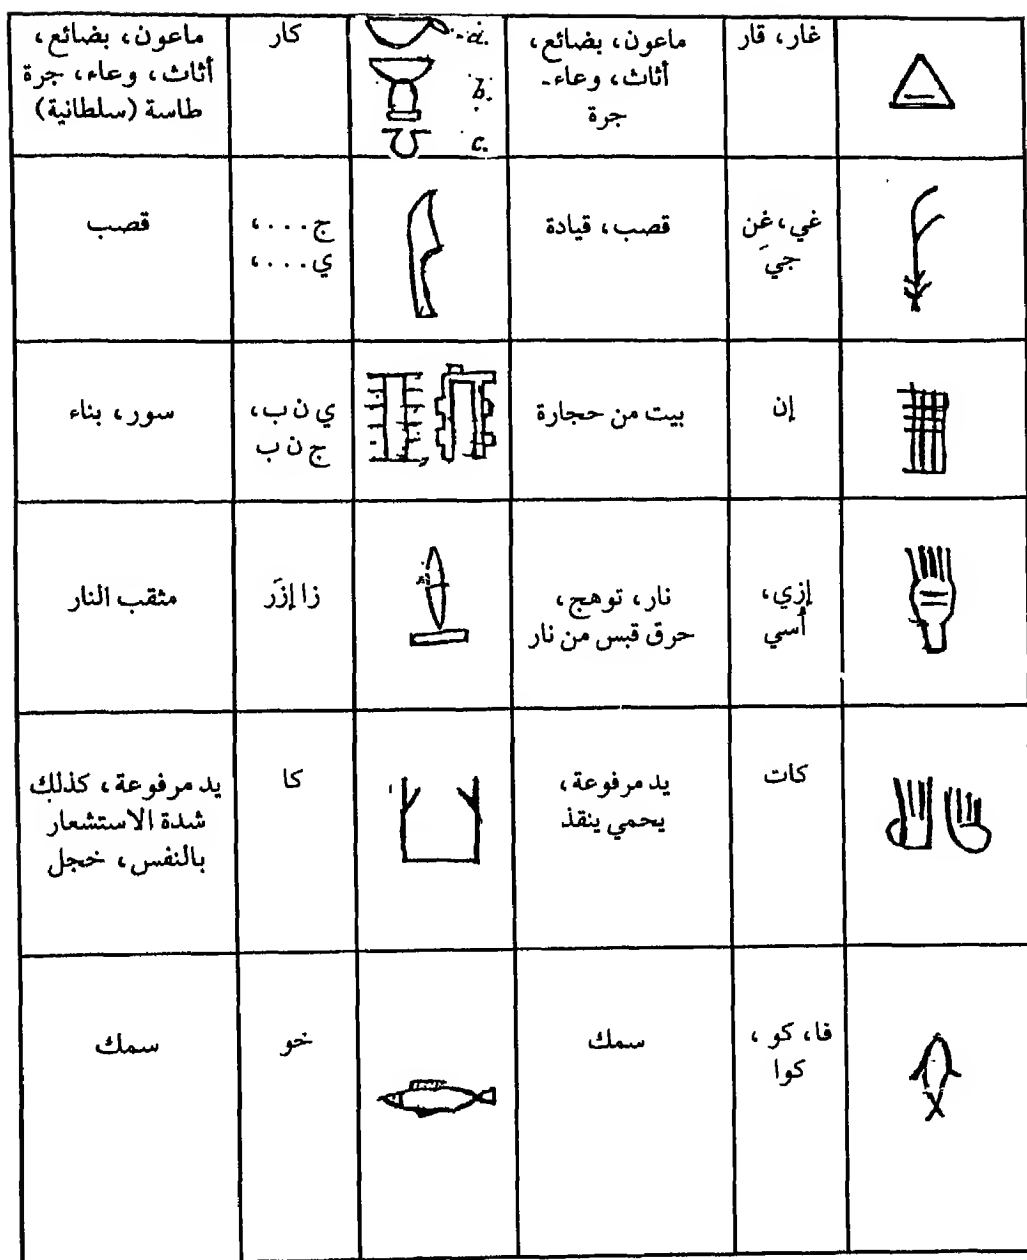 غار، قار
ماعون، بضائع،
أثاث، وعاء-
جرة
a.
b.
c.
كار
ماعون، بضائع،
أثاث، وعاء، جرة
طاسة (سلطانية)
غي، غن
جيَ
قصب، قيادة
ج...،
ي...،
قصب
إن
بيت من حجارة
ي ن ب،
ج ن ب
سور، بناء
إزي،
أسي
نار، توهج،
حرق قبس من نار
زا إزَر
مثقب النار
كات
يد مرفوعة،
يحمي ينقذ
كا
يد مرفوعة، كذلك
شدة الاستشعار
بالنفس، خجل
فا، كو،
كوا
سمك
خو
سمك